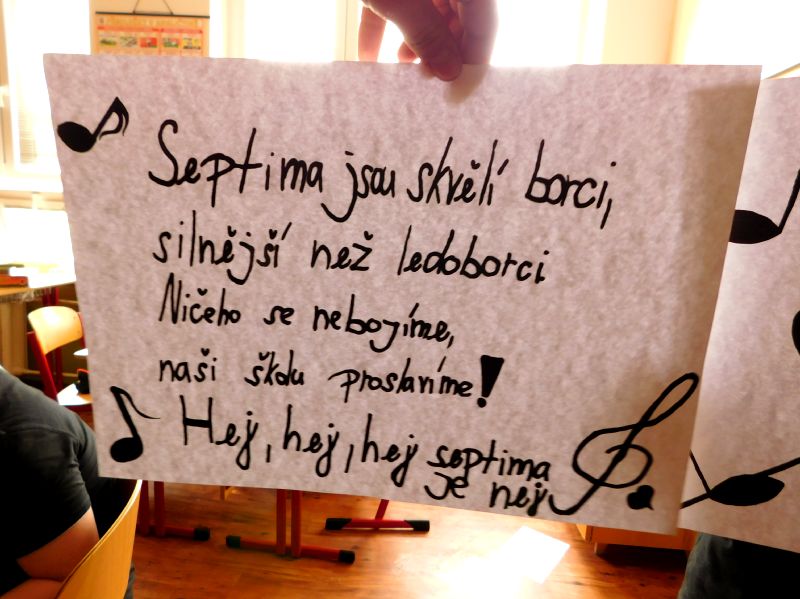 Septima jsou skvělí borci,
silnější než ledoborci
Ničeho se nebojíme,
naši školu proslavíme!
Hej, hej, hej septima
je nej